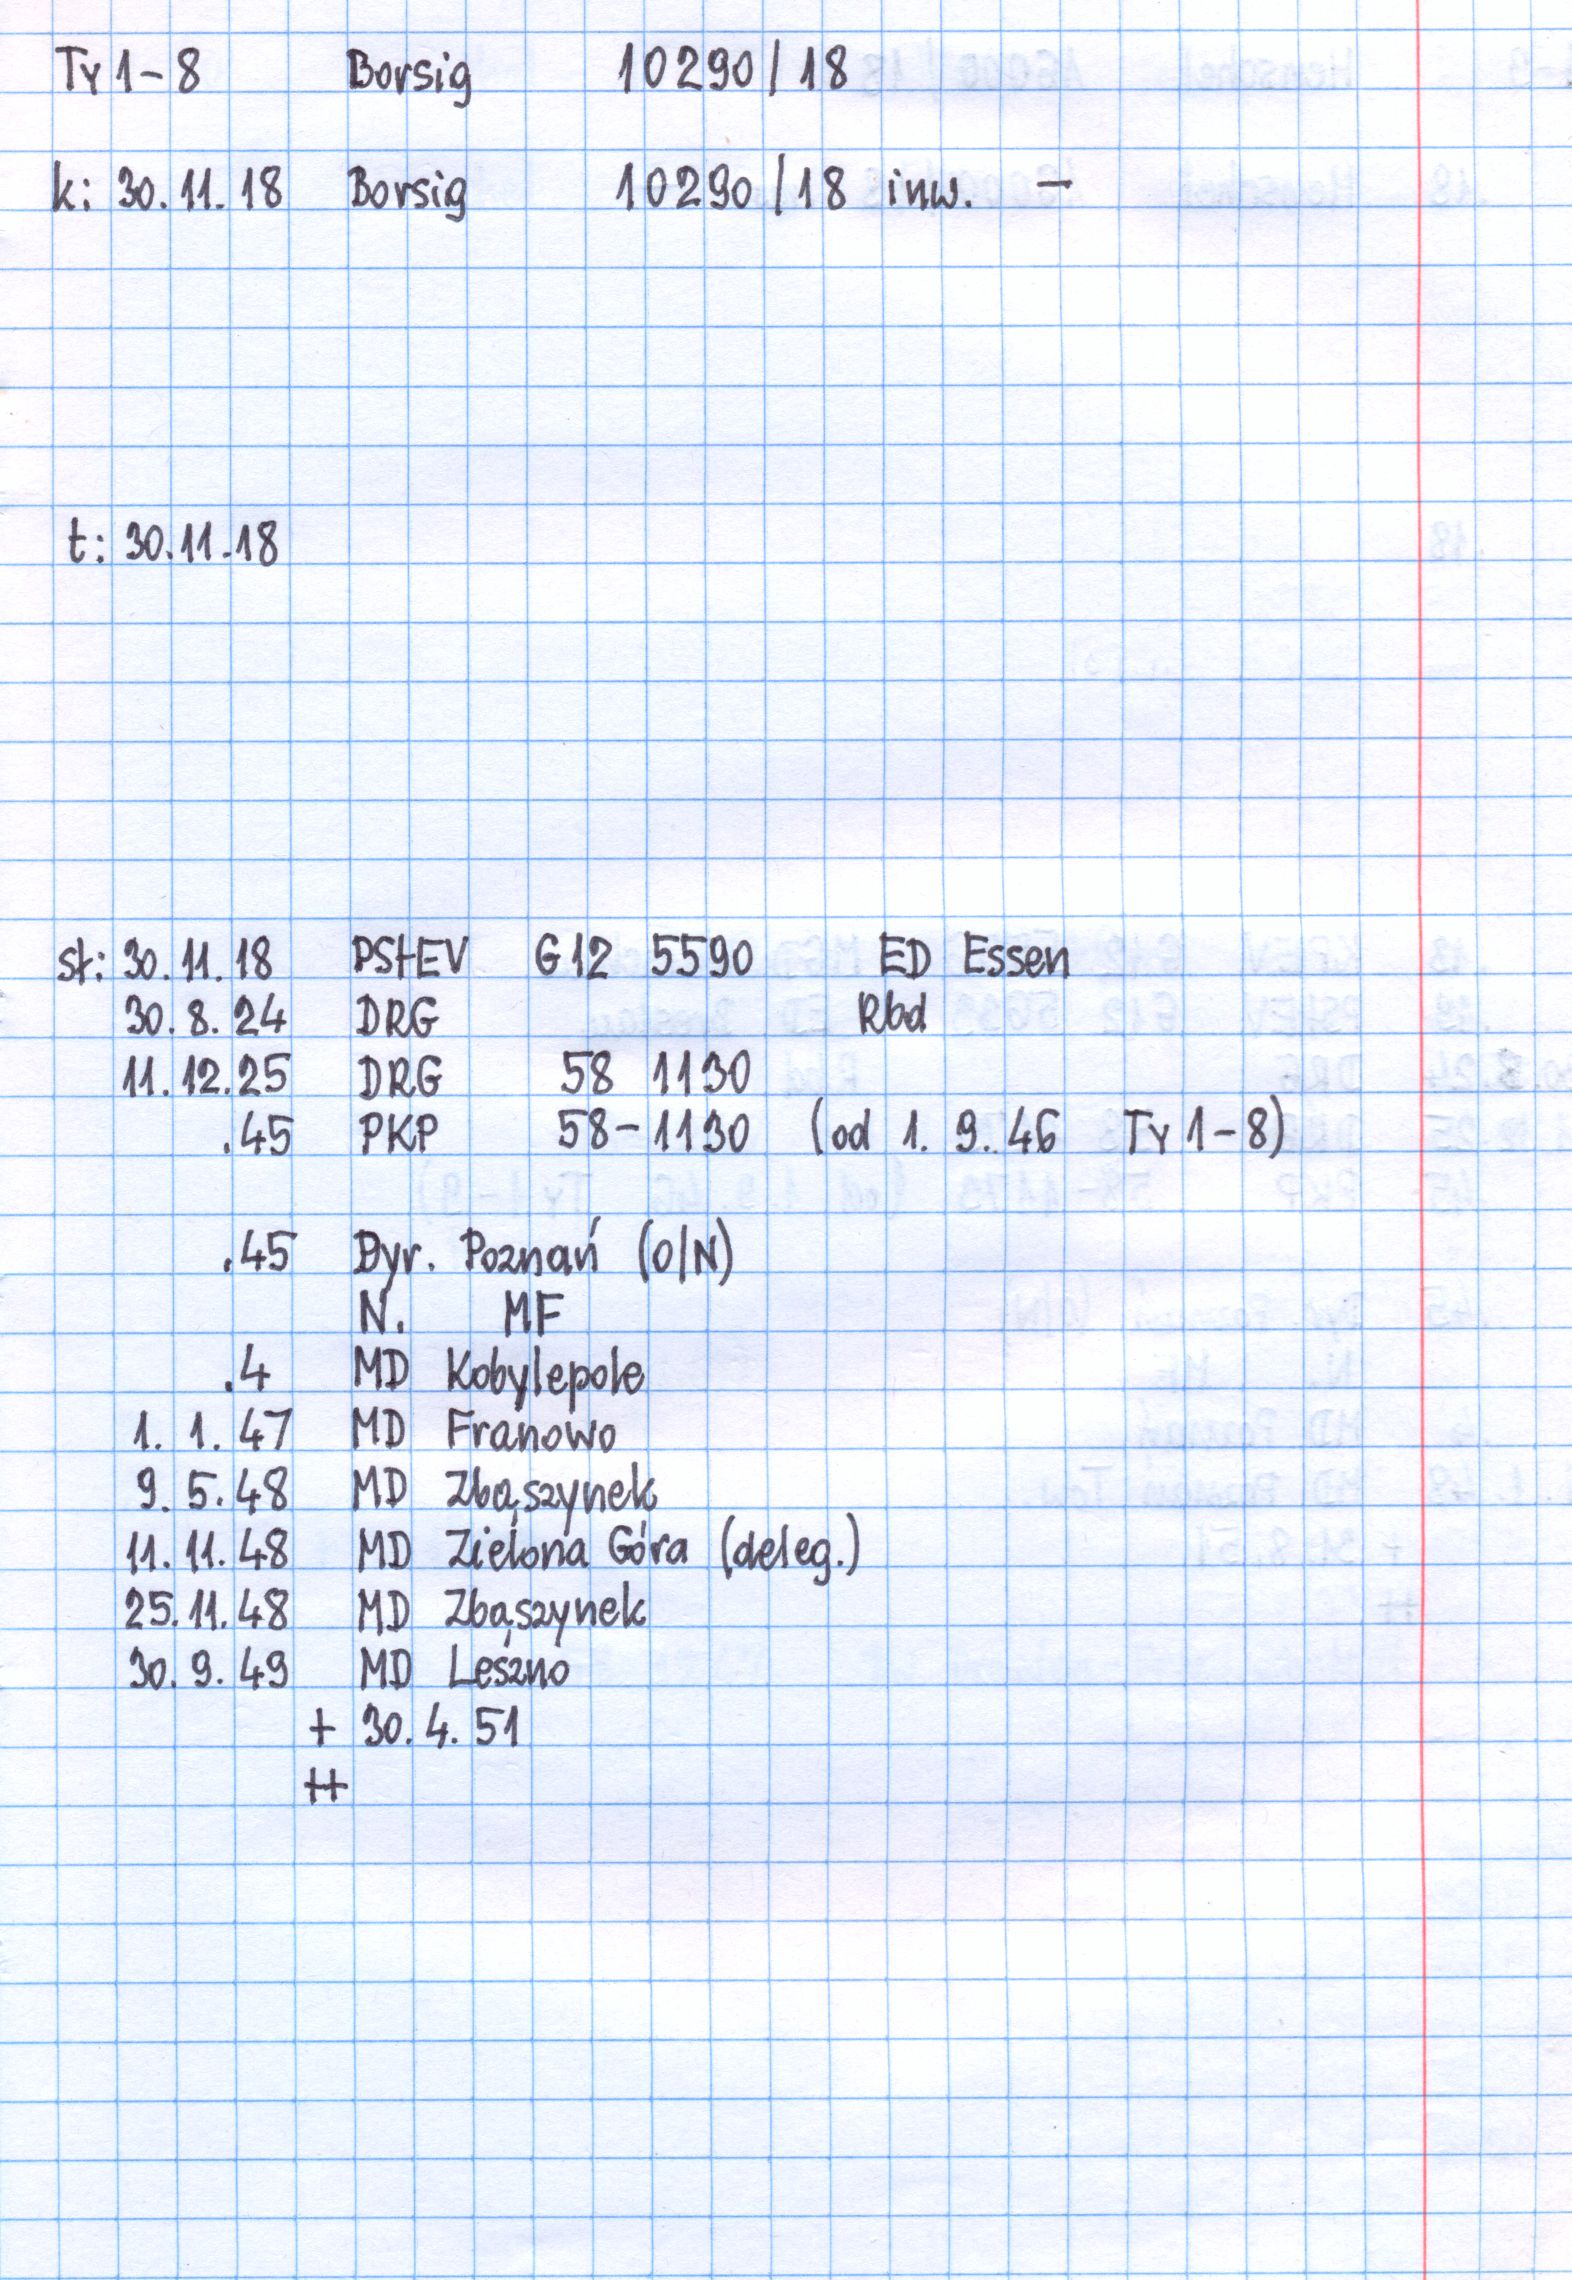 Ty 1-8 Borsig 10290/18
k: 30.11.18 Borsig 10290/18 inw. -
t: 30.11.18
st: 30.11.18 PStEV G12 5590 ED Essen
30.8.24 DRG Rbd
11.12.25 DRG 58 1130
.45 PKP 58-1130 (od 1.9.46 Ty 1-8)
.45 Dyr. Poznań (O/N)
N. MF
.4 MD Kobylepole
1.1.47 MD Franowo
9.5.48 MD Zbąszynek
11.11.48 MD Zielona Góra (deleg.)
25.11.48 MD Zbąszynek
30.9.49 MD Leszno
+ 30.4.51
++